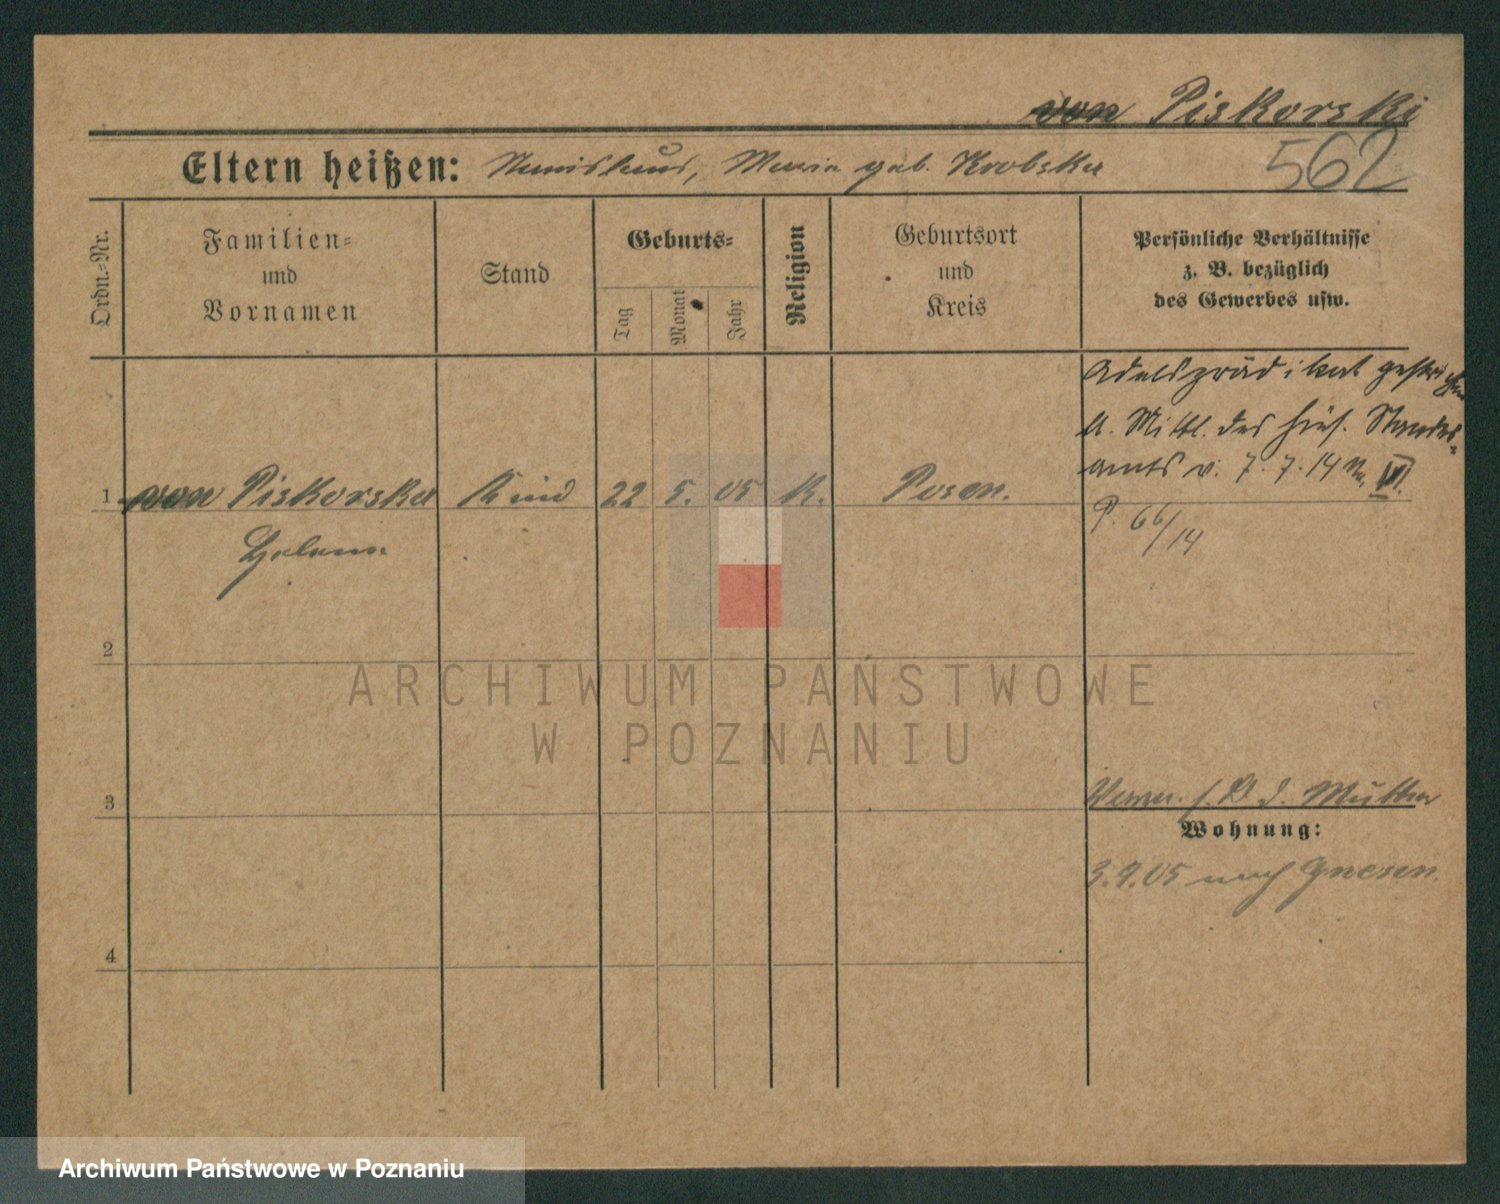 von Piskorski
Eltern heißen: Stanislaus, Maria geb. Krobska
562
Ordn.-Nr.
Familien-
und
Vornamen
Stand
Geburts-
Tag
Monat
Jahr
Religion
Geburtsort
und
Kreis
Persönliche Verhältnisse
z. B. bezüglich
des Gewerbes usw.
Adelsprädikat gestrichen
lt. Mittl. des hies. Standes-
amts v. 7.7.14 No. VI.
P. 66/14
1 von Piskorska Kind 22 5. 05 K. Posen.
Helene
2
3
d. Mutter
Wohnung:
3.9.05 nach Gnesen.
4
ARCHIWUM PAŃSTWOWE
W POZNANIU
Archiwum Państwowe w Poznaniu